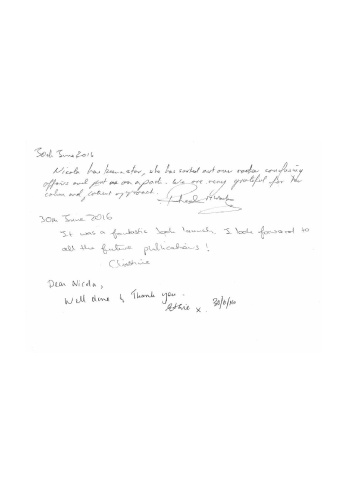 30th June 2016
Nicola has been a star, she has sorted out our rather confusing
affairs and put us on a path. We are very grateful for the
calm and
30th June 2016
It was a fantastic book launch. I look forward to
all the future publications!
Christine
Dear Nicola,
Well done & Thank you.
x. 30/6/16